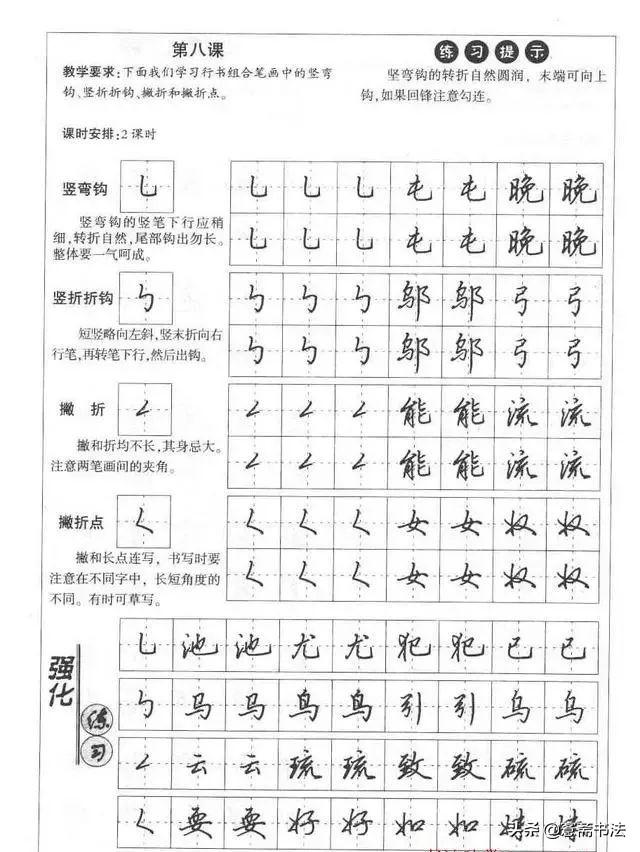 第八课
教学要求:下面我们学习行书组合笔画中的竖弯
钩、竖折折钩、撇折和撇折点。
课时安排:2课时
练习提示
竖弯钩的转折自然圆润，末端可向上
钩,如果回锋注意勾连。
竖弯钩 乚
竖弯钩的竖笔下行应稍
细,转折自然,尾部钩出勿长。
整体要一气呵成。
乚 乚 乚 屯 屯 晚 晚
乚 乚 乚 屯 屯 晚 晚
竖折折钩 ㄅ
短竖略向左斜,竖末折向右
行笔,再转笔下行,然后出钩。
ㄅ ㄅ ㄅ 邬 邬 弓 弓
ㄅ ㄅ ㄅ 邬 邬 弓 弓
撇折 ㄥ
撇和折均不长,其身忌大。
注意两笔画间的夹角。
ㄥ ㄥ ㄥ 能 能 流 流
ㄥ ㄥ ㄥ 能 能 流 流
撇折点 ㄑ
撇和长点连写，书写时要
注意在不同字中，长短角度的
不同。有时可草写。
ㄑ ㄑ ㄑ 女 女 奴 奴
ㄑ ㄑ ㄑ 女 女 奴 奴
强化
练习
乚 池 池 尤 尤 犯 犯 已 已
ㄅ 马 马 鸟 鸟 引 引 乌 乌
ㄥ 云 云 琉 琉 致 致 硫 硫
ㄑ 要 要 好 好 如 如